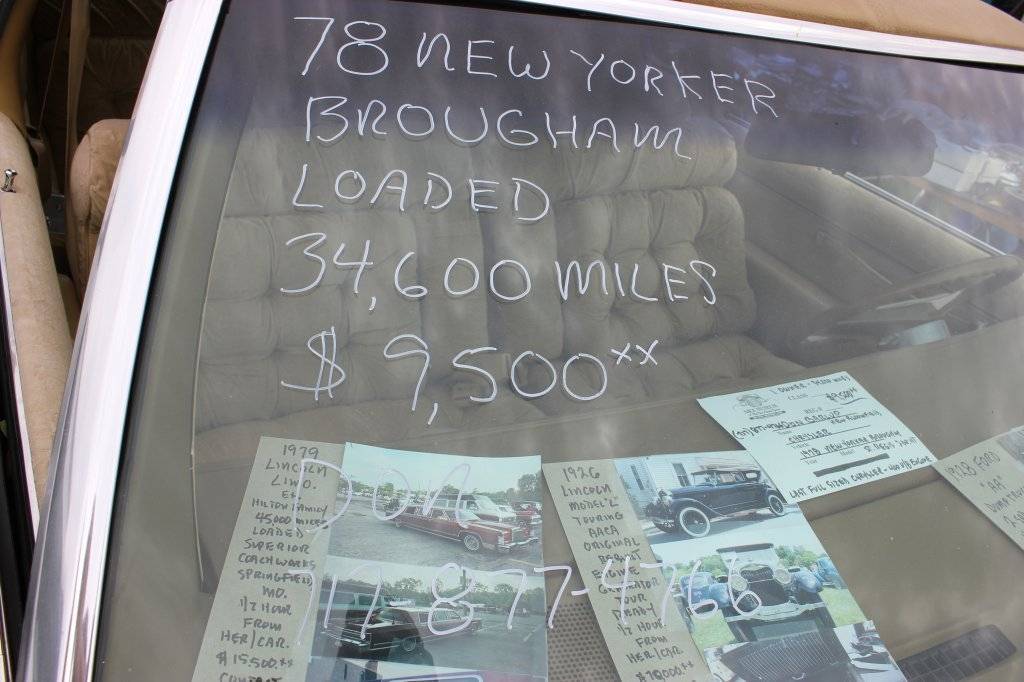 78 NEW YORKER
BROUGHAM
LOADED
34,600 MILES
$ 9,500xx
Don
717-877-4766
1979
LINCOLN
LIMO.
EX.
HILTON FAMILY
45,000 MILES
LOADED
SUPERIOR
COACHWORKS
SPRINGFIELD
MO.
1/2 HOUR
FROM
HER/CAR.
$15,500.xx
CONTACT
1926
LINCOLN
MODEL "L"
TOURING
AACA
ORIGINAL
REBUILT
ENGINE
GENERATOR
TOUR
READY
1/2 HOUR
FROM
HER/CAR.
$70,000.xx
1 OWNER -
CLASS
$9,500
REG.#
Name
CHRYSLER
1978 NEW YORKER BROUGHAM
Year
Model
LAST FULL SIZED CHRYSLER -
1928 FORD
"AA"